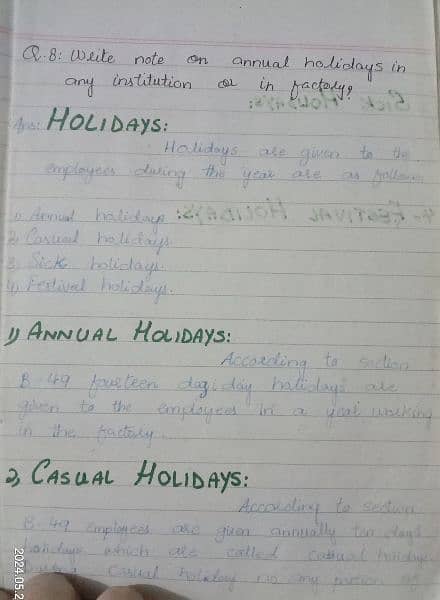 Q.8: Write note on annual holidays in
any institution or in factory?
Ans: HOLIDAYS:
Holidays are given to the
employees during the year are as follow
1) Annual holidays
2) Casual holidays
3) Sick holidays
4) Festival holidays.
1) ANNUAL HOLIDAYS:
According to section
B-49 fourteen days holidays are
given to the employees in a year working
in the factory
2) CASUAL HOLIDAYS:
According to section
B-49 employees are given annually ten days
holidays which are called casual holidays
Casual holiday no any portion of
2024.05.2